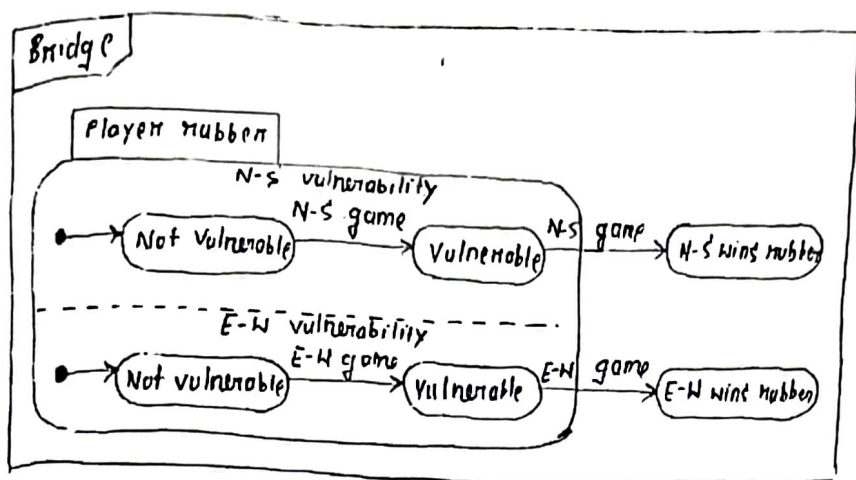 Bridge
Player rubber
N-S vulnerability
N-S game
N-S game
Not Vulnerable
Vulnerable
N-S wins rubber
E-W vulnerability
E-W game
E-W game
Not vulnerable
Vulnerable
E-W wins rubber